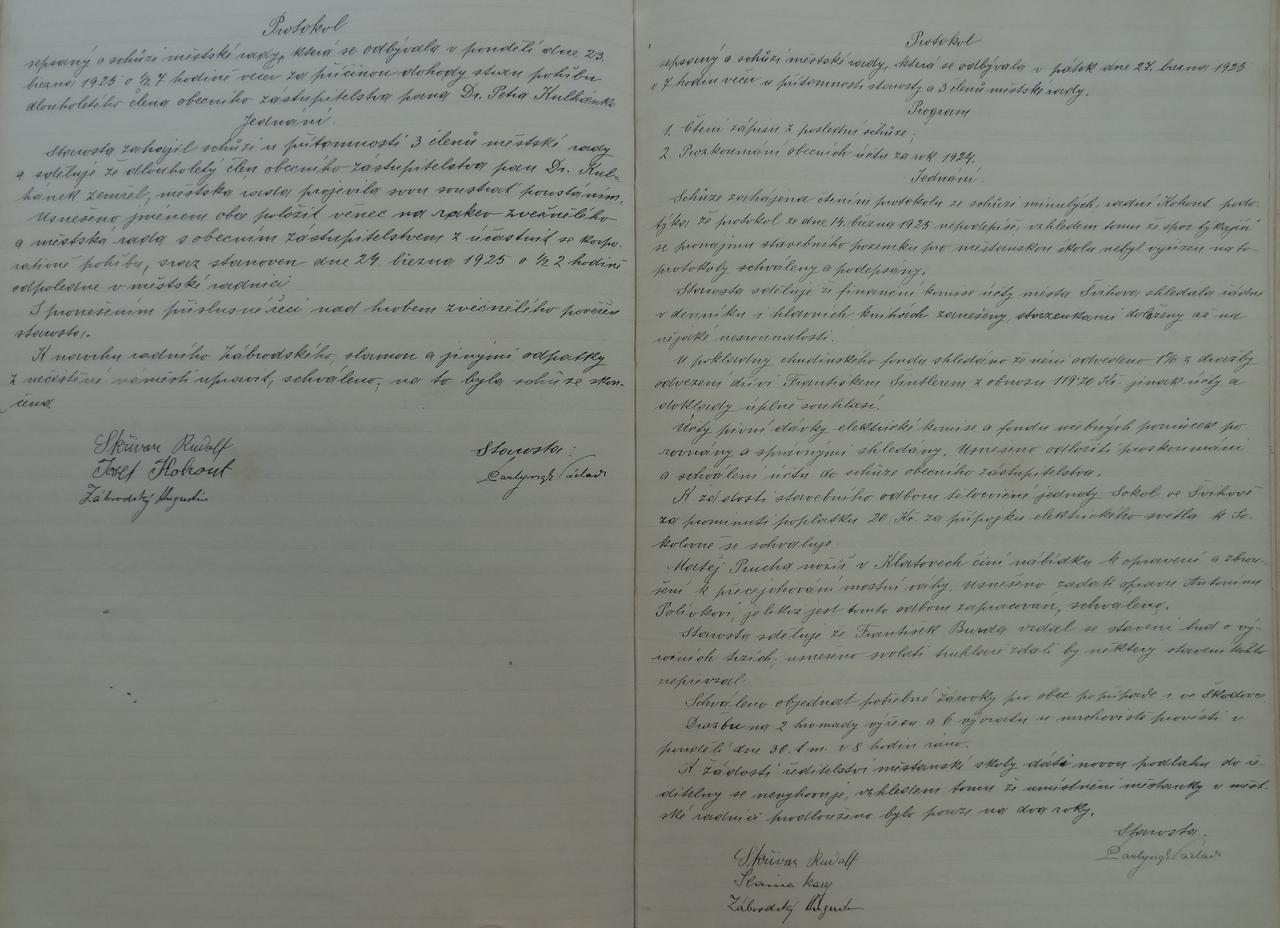 Protokol
sepsaný o schůzi městské rady, která se odbývala v pondělí dne 23.
března 1925 o ½ 7 hodině večer za příčinou dohody stran pohřbu
dlouholetého člena obecního zástupitelstva pana Dr. Petra Kulhánka
Jednání.
Starosta zahájil schůzi u přítomnosti 3 členů městské rady
a sděluje že dlouholetý člen obecního zástupitelstva pan Dr. Kul-
hánek zemřel, městská rada projevila svou soustrast povstáním.
Usneseno jménem obce položit věnec na rakev zvěčnělého
a městská rada s obecním zástupitelstvem z účastnit se korpo-
rativně pohřbu, sraz stanoven dne 24. března 1925 o ½ 2 hodině
odpoledne v městské radnici
S pronešením příslusné řeči nad hrobem zvěčnělého pověřen
starosta.
K navrhu radního Zábrodského, slamou a jinými odpatky
z nečistěné náměstí upravit, schváleno, na to byla schůze skon-
čena.
Skřivan Rudolf
Josef Kohout
Zábrodský Augustin
Starosta:
Protokol
sepsaný o schůzi městské rady, která se odbývala v pátek dne 27. března 1925
o 7 hodin večer u přítomnosti starosty a 3 členů městské rady.
Program
1. Čtení zápisu z poslední schůze;
2. Prozkoumání obecních účtu za rok 1924.
Jednání.
Schůze zahájena čtením protokolu ze schůzi minulých, radní Kohout podo-
týka že protokol ze dne 14. března 1925 nepodepíše, vzhledem tomu že spor týkající
se pronájmu stavebního pozemku pro měšťanskou školu nebyl vyřízen na to
protokoly schváleny a podepsány.
Starosta sděluje že finanční komise účty města Švihova shledala řádně
v denníku i hlavních knihách zanešeny, stvrzenkami doloženy až na
nějaké nesrovnalosti.
U pokladny chudinského fondu shledáno že není odvedeno 1% z dražby
odvezení dříví Františkem Šintlerem z obnosu 11920 Kč. jinak účty a
doklady úplně souhlasí.
Účty pivní dávky elektrické komise a fondu učebných pomůcek po-
rovnány a správnými shledány. Usneseno odložiti proskoumání
a schvalení účtu do schůze obecního zástupitelstva.
K žádosti stavebního odboru tělocvičné jednoty Sokol ve Švihově
za prominutí poplatku 20 Kč. za přípojku elektrického světla k So-
kolovně se schvaluje.
Matěj Prucha nožíř v Klatovech činí nábídku k opravení a zbrou-
šení k přecejchování mostní váhy. Usneseno zadati opravu Antonínu
Polívkovi, jelikož jest tomto odboru zapracován, schváleno.
Starosta sděluje že František Burda vzdal se stavení bud o vý-
ročních trzích, usneseno svolati truhlare zdali by některý stavení tohto
nepřevzal.
Schváleno objednat potřebné žárovky pro obec popřípadě i ve Škodovce
Dražbu na 2 hromady výřezu a 6 vývratu u mrchoviště provésti v
pondělí dne 30. t. m. v 8 hodin ráno.
K žádosti ředitelství měšťanské školy dáti novou podlahu do ře-
ditelny se nevyhovuje, vzhledem tomu že umístnění měšťanky v měst-
ské radnici prodlouženo bylo pouze na dva roky.
Starosta:
Skřivan Rudolf
Zábrodský Augustin